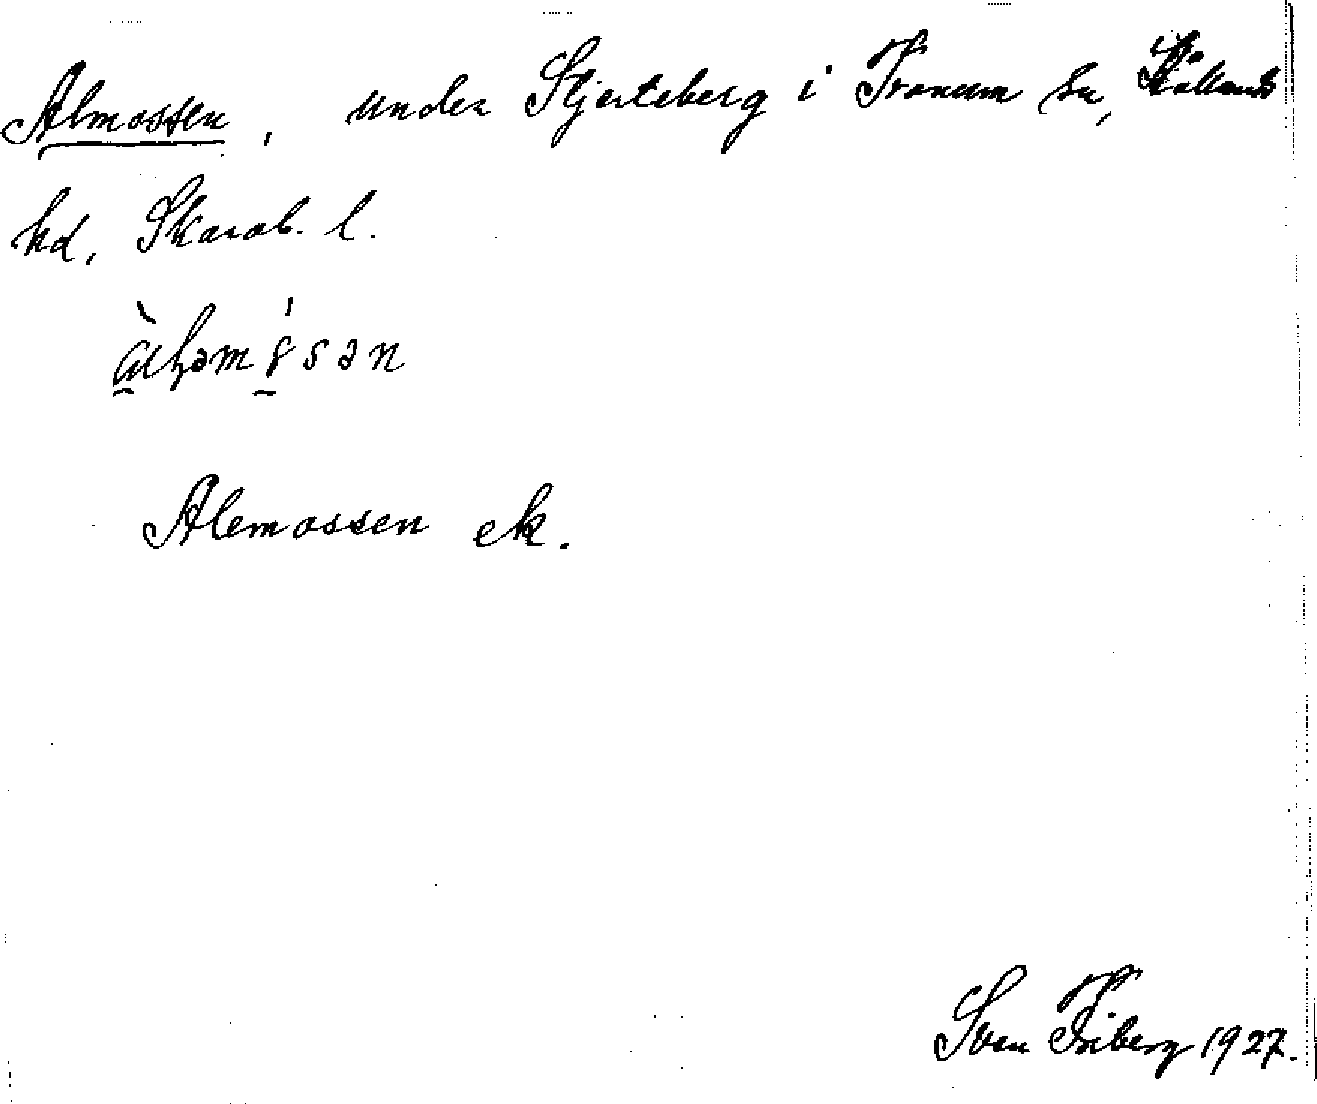 Almossen, under Stjerteberg i Tranum sn, Kållands
hd, Skarab. l.
Alemossen ek.
Sven Friberg 1927.